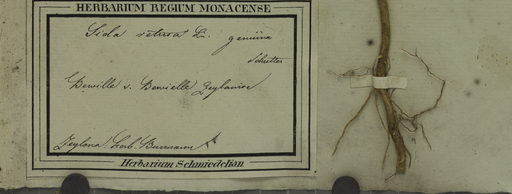 HERBARIUM REGIUM MONACENSE
Sida retusa L. genuina
Schreber
Bewille v. Bewielle Zeylanice
Zeylona. herb. Burmann
Herbarium Schmiedelian